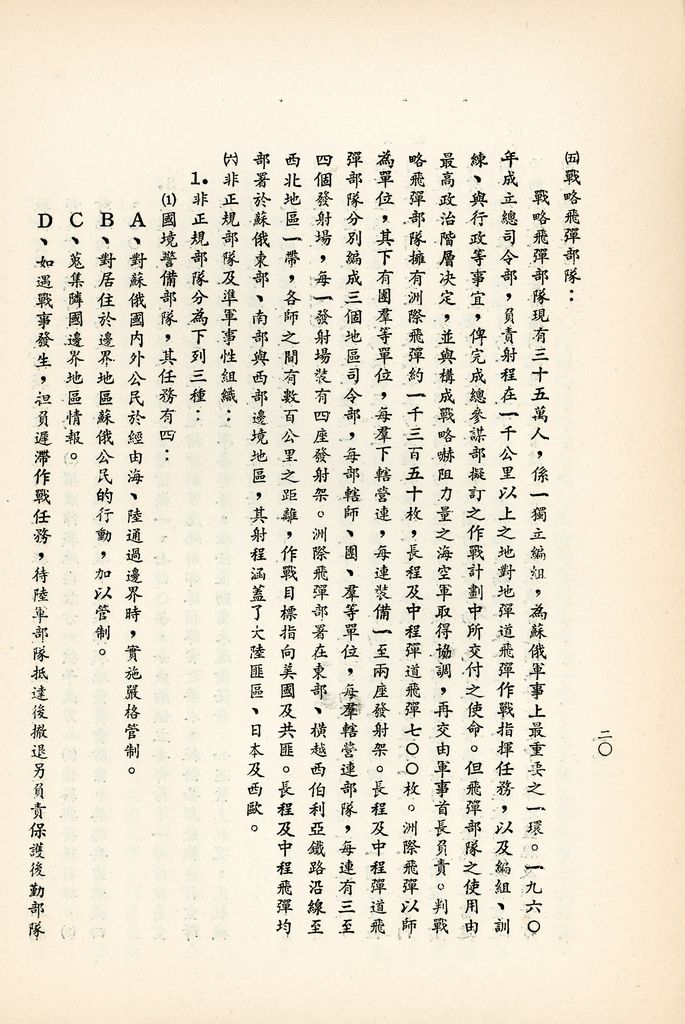 二〇
㈤戰略飛彈部隊：
戰略飛彈部隊現有三十五萬人，係一獨立編組，為蘇俄軍事上最重要之一環。一九六〇
年成立總司令部，負責射程在一千公里以上之地對地彈道飛彈作戰指揮任務，以及編組、訓
練、與行政等事宜，俾完成總參謀部擬訂之作戰計劃中所交付之使命。但飛彈部隊之使用由
最高政治階層決定，並與構成戰略嚇阻力量之海空軍取得協調，再交由軍事首長負責。判戰
略飛彈部隊擁有洲際飛彈約一千三百五十枚，長程及中程彈道飛彈七〇〇枚。洲際飛彈以師
為單位，其下有團羣等單位，每羣下轄營連，每連裝備一至兩座發射架。長程及中程彈道飛
彈部隊分別編成三個地區司令部，每部轄師、團、羣等單位，每羣轄營連部隊，每連有三至
四個發射場，每一發射場裝有四座發射架。洲際飛彈部署在東部、橫越西伯利亞鐵路沿線至
西北地區一帶，各師之間有數百公里之距離，作戰目標指向美國及共匪。長程及中程飛彈均
部署於蘇俄東部、南部與西部邊境地區，其射程涵蓋了大陸匪區、日本及西歐。
㈥非正規部隊及準軍事性組織：
1.非正規部隊分為下列三種：
⑴國境警備部隊，其任務有四：
A、對蘇俄國內外公民於經由海、陸通過邊界時，實施嚴格管制。
B、對居住於邊界地區蘇俄公民的行動，加以管制。
C、蒐集隣國邊界地區情報。
D、如遇戰事發生，担負遲滯作戰任務，待陸軍部隊抵達後撤退另負責保護後勤部隊